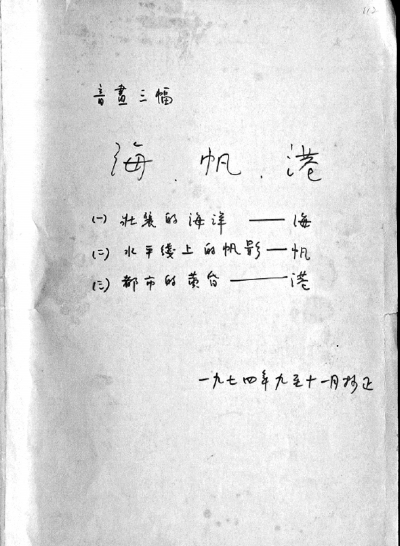 112
音畫三幅
海．帆．港
(一) 壯麗的海洋——海
(二) 水平线上的帆影—帆
(三) 都市的黄昏——港
一九七四年九至十一月抄正